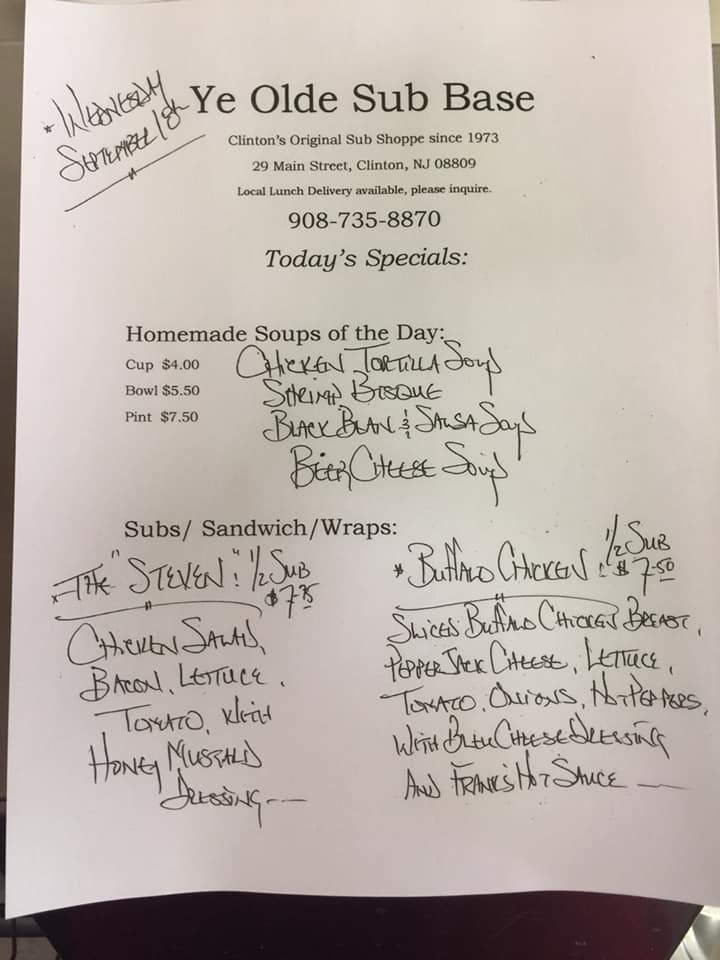 * Wednesday
September 18th
Ye Olde Sub Base
Clinton's Original Sub Shoppe since 1973
29 Main Street, Clinton, NJ 08809
Local Lunch Delivery available, please inquire.
908-735-8870
Today's Specials:
Homemade Soups of the Day:
Cup $4.00
Bowl $5.50
Pint $7.50
Chicken Tortilla Soup
Shrimp Bisque
Black Bean & Salsa Soup
Beer Cheese Soup
Subs/ Sandwich/Wraps:
* The "Steven": 1/2 Sub
$7.75
Chicken Salad,
Bacon, Lettuce,
Tomato, with
Honey Mustard
Dressing---
* Buffalo Chicken: 1/2 Sub
$7.50
Sliced Buffalo Chicken Breast,
Pepper Jack Cheese, Lettuce,
Tomato, Onions, Hot Peppers,
With Bleu Cheese Dressing
And Frank's Hot Sauce —